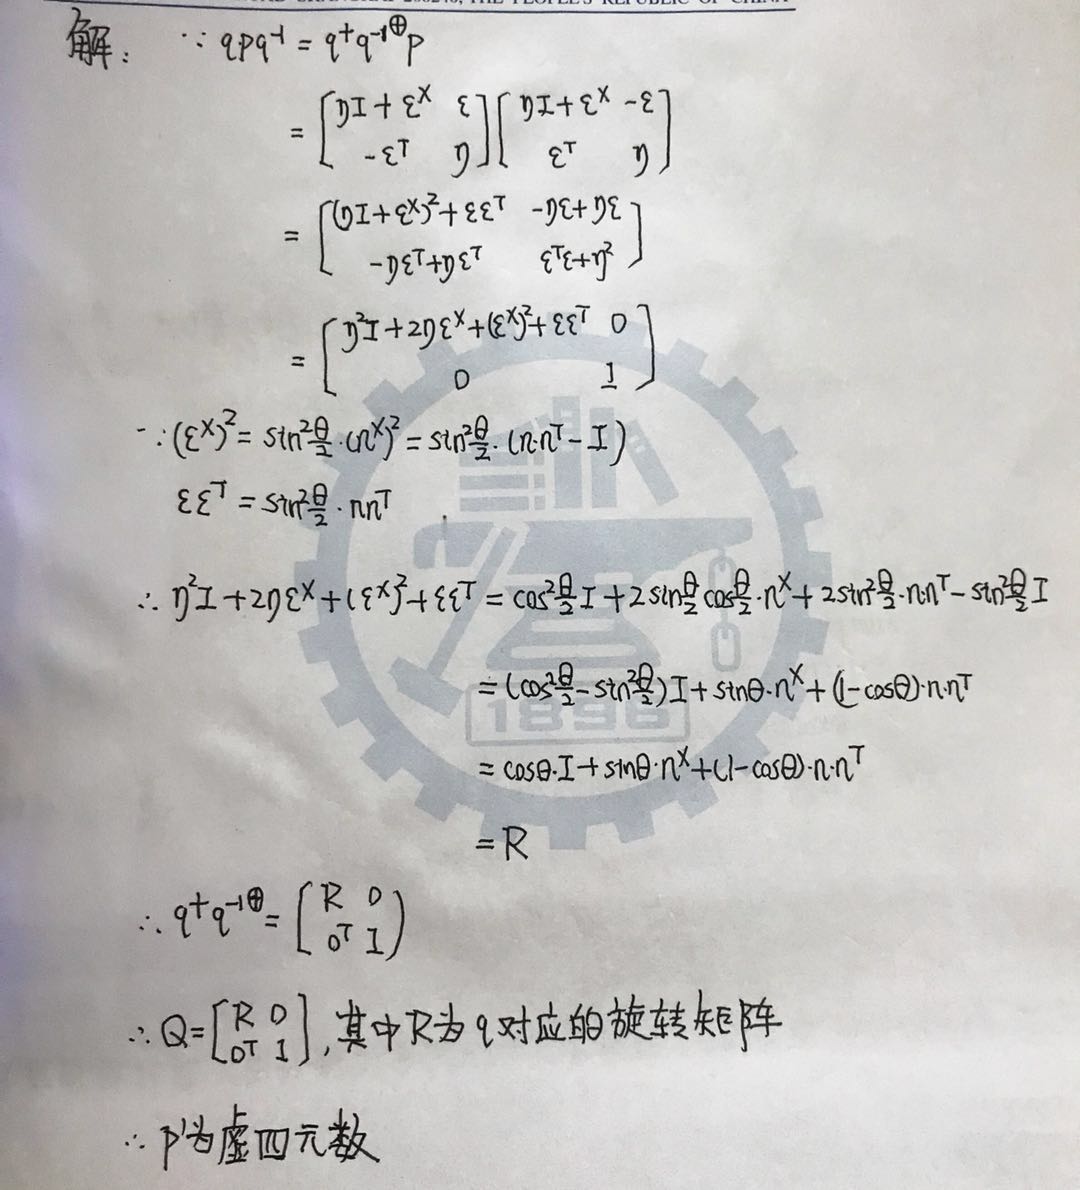 解: ∵ qpq⁻¹ = q⁺q⁻¹⊕p
= [ηI + ε× ε; -εᵀ η][ηI + ε× -ε; εᵀ η]
= [(ηI + ε×)² + εεᵀ -ηε + ηε; -ηεᵀ + ηεᵀ εᵀε + η²]
= [η²I + 2ηε× + (ε×)² + εεᵀ 0; 0 1]
∵ (ε×)² = sin²θ/2 · (n×)² = sin²θ/2 · (n·nᵀ - I)
εεᵀ = sin²θ/2 · nnᵀ
∴ η²I + 2ηε× + (ε×)² + εεᵀ = cos²θ/2 I + 2 sinθ/2 cosθ/2 · n× + 2sin²θ/2 · n·nᵀ - sin²θ/2 I
= (cos²θ/2 - sin²θ/2)I + sinθ·n× + (1-cosθ)·n·nᵀ
= cosθ·I + sinθ·n× + (1-cosθ)·n·nᵀ
= R
∴ q⁺q⁻¹⊕ = [R 0; 0ᵀ 1]
∴ Q = [R 0; 0ᵀ 1], 其中R为q对应的旋转矩阵
∴ p'为虚四元数
1896